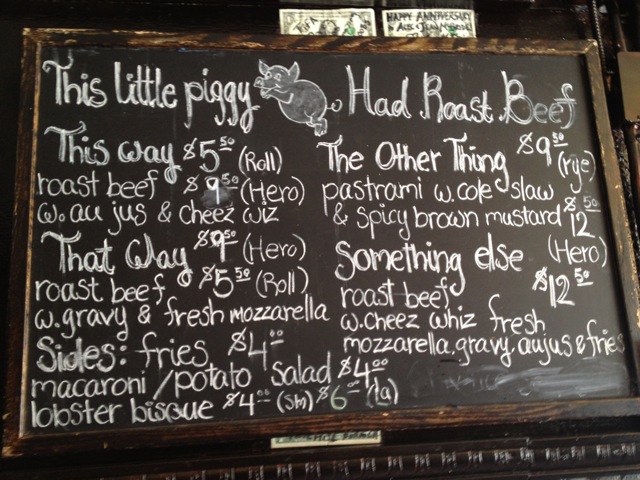 HAPPY ANNIVERSARY
This little piggy Had Roast Beef
This way $5.50 (Roll)
roast beef $9.50 (Hero)
w. au jus & cheez wiz
That Way $9.50 (Hero)
roast beef $5.50 (Roll)
w. gravy & fresh mozzarella
The Other Thing $9.50 (rye)
pastrami w. cole slaw
& spicy brown mustard $12.50
Something else (Hero)
roast beef $12.50
w. cheez whiz fresh
mozzarella, gravy, au jus & fries
Sides: fries $4.00
macaroni/potato salad $4.00
lobster bisque $4.00 (sm) $6.00 (la)